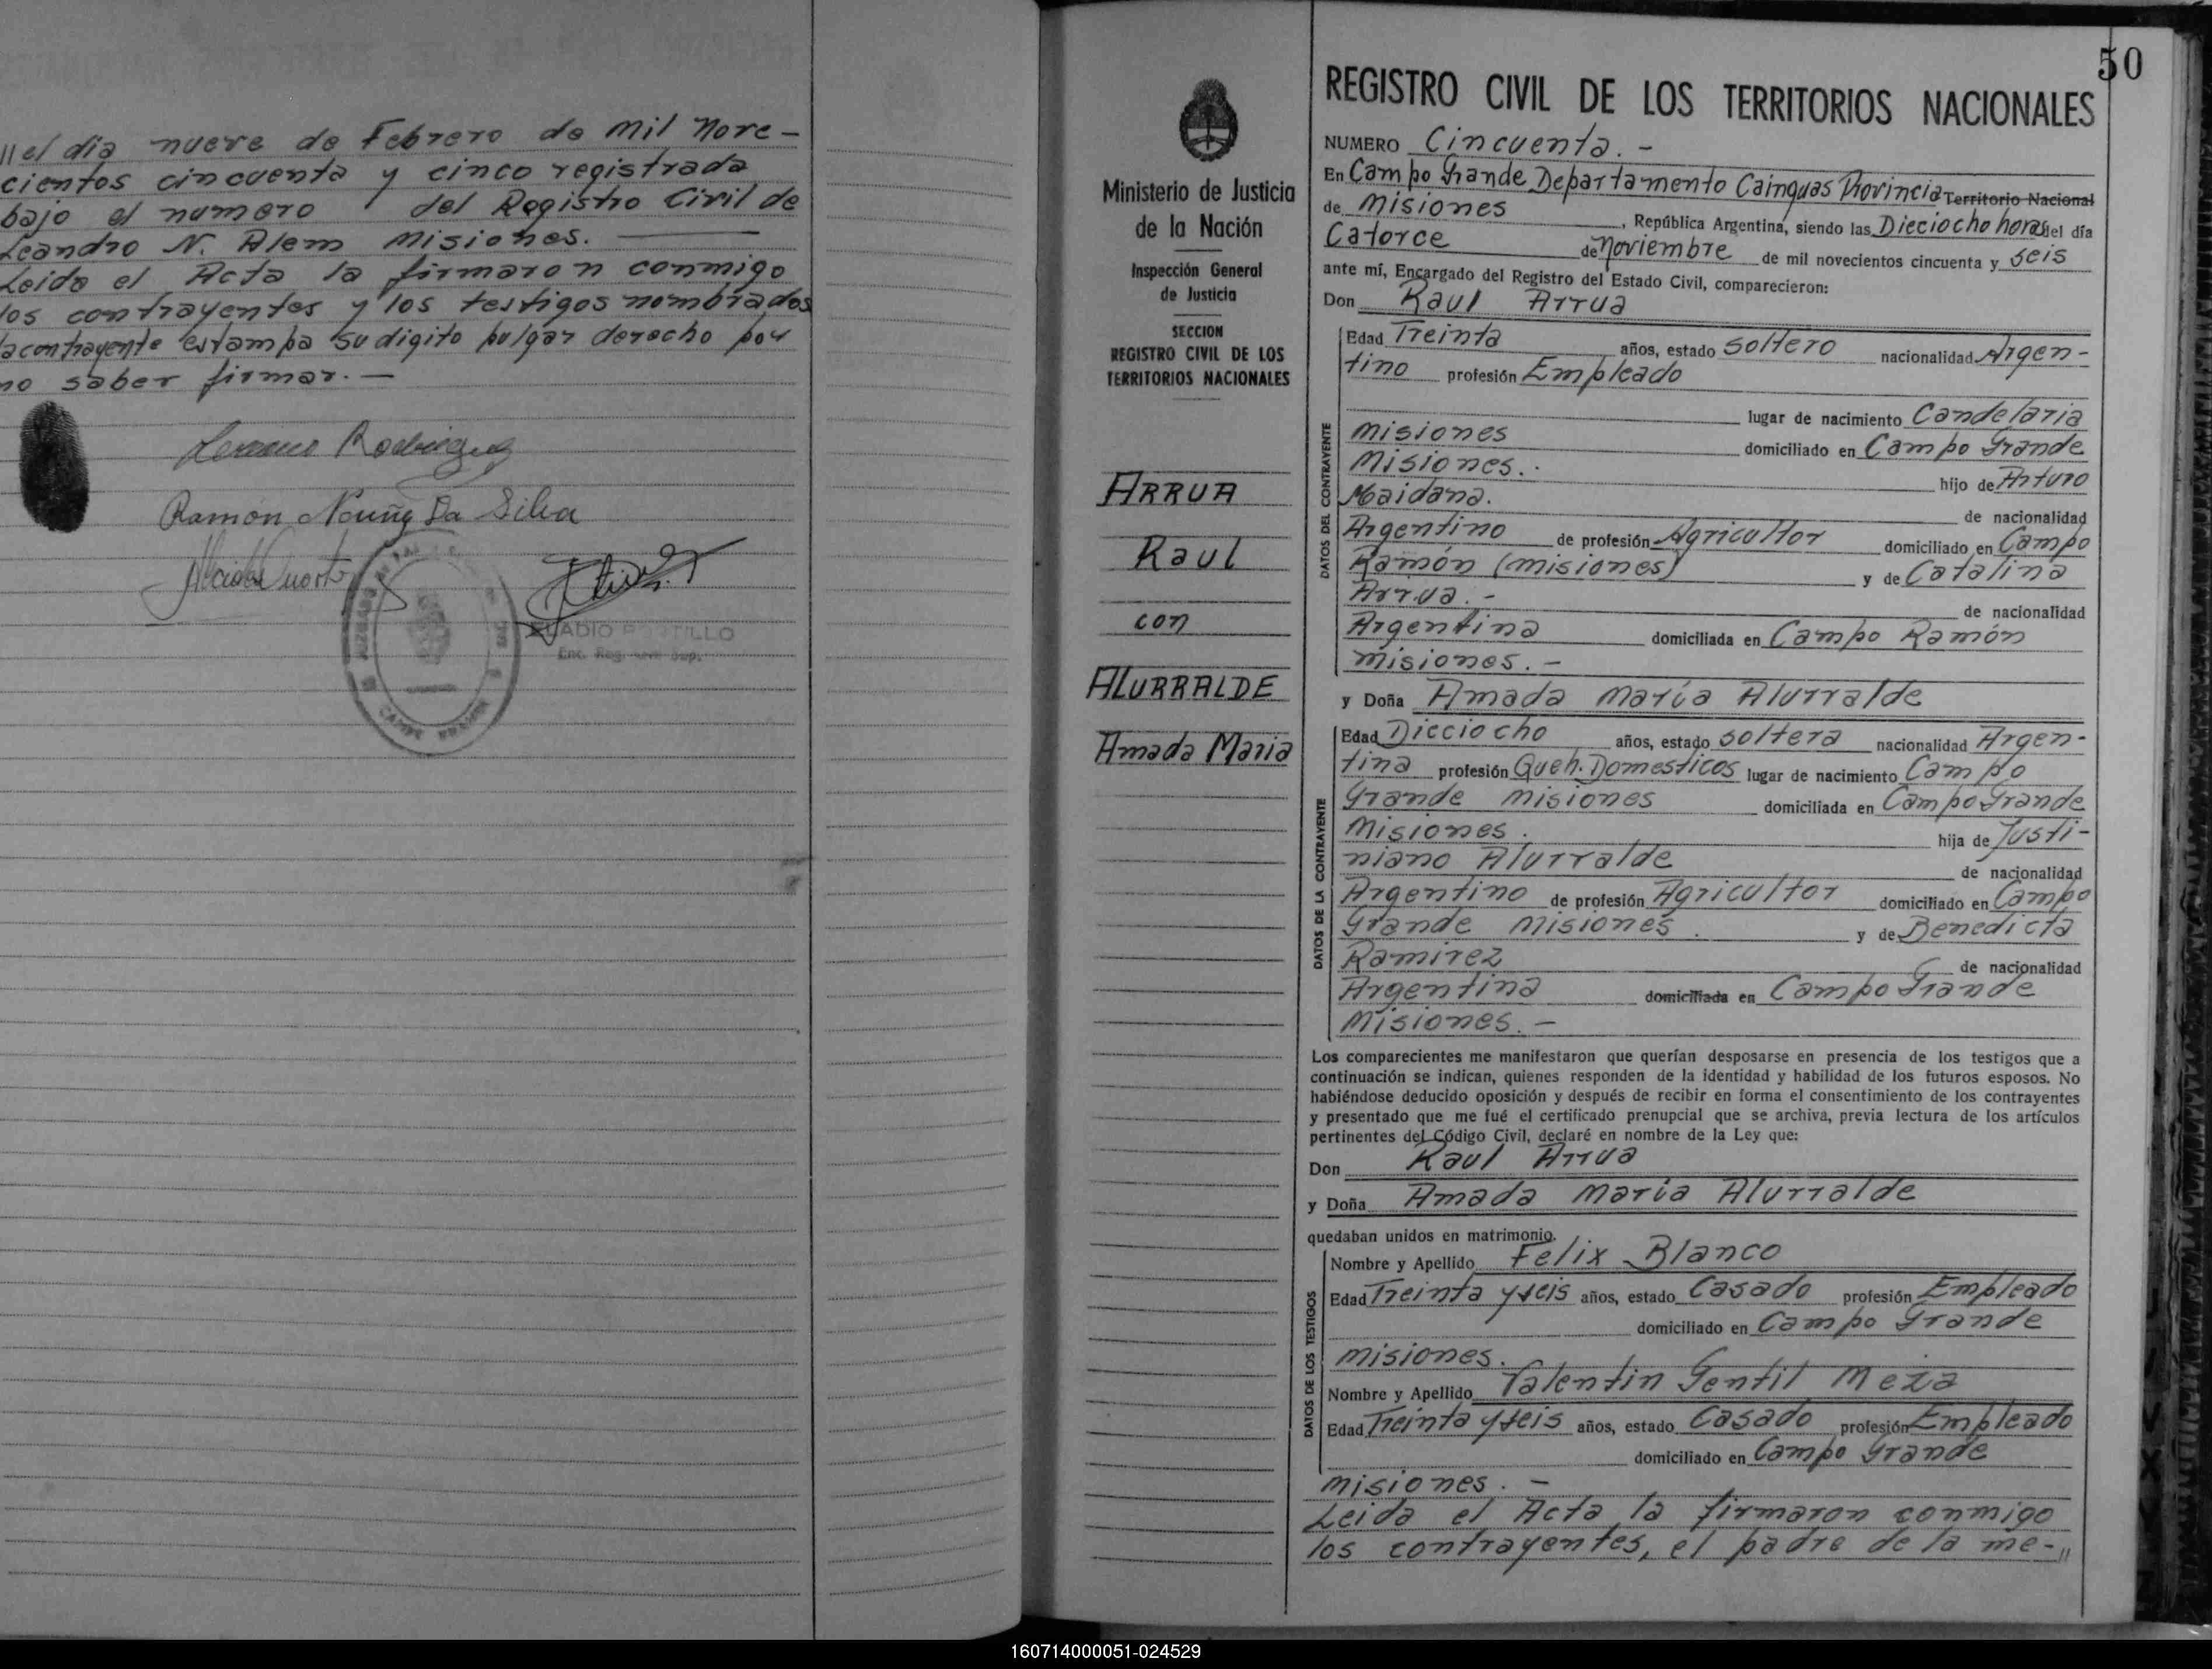 ||el dia nueve de Febrero de mil nove-
cientos cincuenta y cinco registrada
bajo el numero del Registro Civil de
Leandro N. Alem Misiones.
Leida el Acta la firmaron conmigo
los contrayentes y los testigos nombrados
la contrayente estampa su digito pulgar derecho por
no saber firmar.-
Rodriguez
Ramón Nuñez Da Silva
ELADIO PORTILLO
Enc. Reg. Civil Sup.
50
REGISTRO CIVIL DE LOS TERRITORIOS NACIONALES
Ministerio de Justicia
de la Nación
Inspección General
de Justicia
SECCION
REGISTRO CIVIL DE LOS
TERRITORIOS NACIONALES
ARRUA
Raul
con
ALURRALDE
Amada Maria
NUMERO Cincuenta.-
En Campo Grande Departamento Cainguas Provincia Territorio Nacional
de Misiones, República Argentina, siendo las Dieciocho horas del día
Catorce de Noviembre de mil novecientos cincuenta y seis
ante mí, Encargado del Registro del Estado Civil, comparecieron:
Don Raul Arrua
DATOS DEL CONTRAYENTE
Edad Treinta años, estado soltero nacionalidad Argen-
tino profesión Empleado
lugar de nacimiento Candelaria
Misiones domiciliado en Campo Grande
Misiones. hijo de Arturo
Maidana. de nacionalidad
Argentino de profesión Agricultor domiciliado en Campo
Ramón (Misiones) y de Catalina
Arrua.- de nacionalidad
Argentina domiciliada en Campo Ramón
Misiones.-
y Doña Amada María Alurralde
DATOS DE LA CONTRAYENTE
Edad Dieciocho años, estado soltera nacionalidad Argen-
tina profesión Queh. Domesticos lugar de nacimiento Campo
Grande Misiones domiciliada en Campo Grande
Misiones. hija de Justi-
niano Alurralde de nacionalidad
Argentino de profesión Agricultor domiciliado en Campo
Grande Misiones. y de Benedicta
Ramirez de nacionalidad
Argentina domiciliada en Campo Grande
Misiones.-
Los comparecientes me manifestaron que querían desposarse en presencia de los testigos que a
continuación se indican, quienes responden de la identidad y habilidad de los futuros esposos. No
habiéndose deducido oposición y después de recibir en forma el consentimiento de los contrayentes
y presentado que me fué el certificado prenupcial que se archiva, previa lectura de los artículos
pertinentes del Código Civil, declaré en nombre de la Ley que:
Don Raul Arrua
y Doña Amada María Alurralde
quedaban unidos en matrimonio.
DATOS DE LOS TESTIGOS
Nombre y Apellido Felix Blanco
Edad Treinta y seis años, estado Casado profesión Empleado
domiciliado en Campo Grande
Misiones.
Nombre y Apellido Valentin Gentil Meza
Edad Treinta y seis años, estado Casado profesión Empleado
domiciliado en Campo Grande
Misiones.-
Leida el Acta la firmaron conmigo
los contrayentes, el padre de la me-||
160714000051-024529